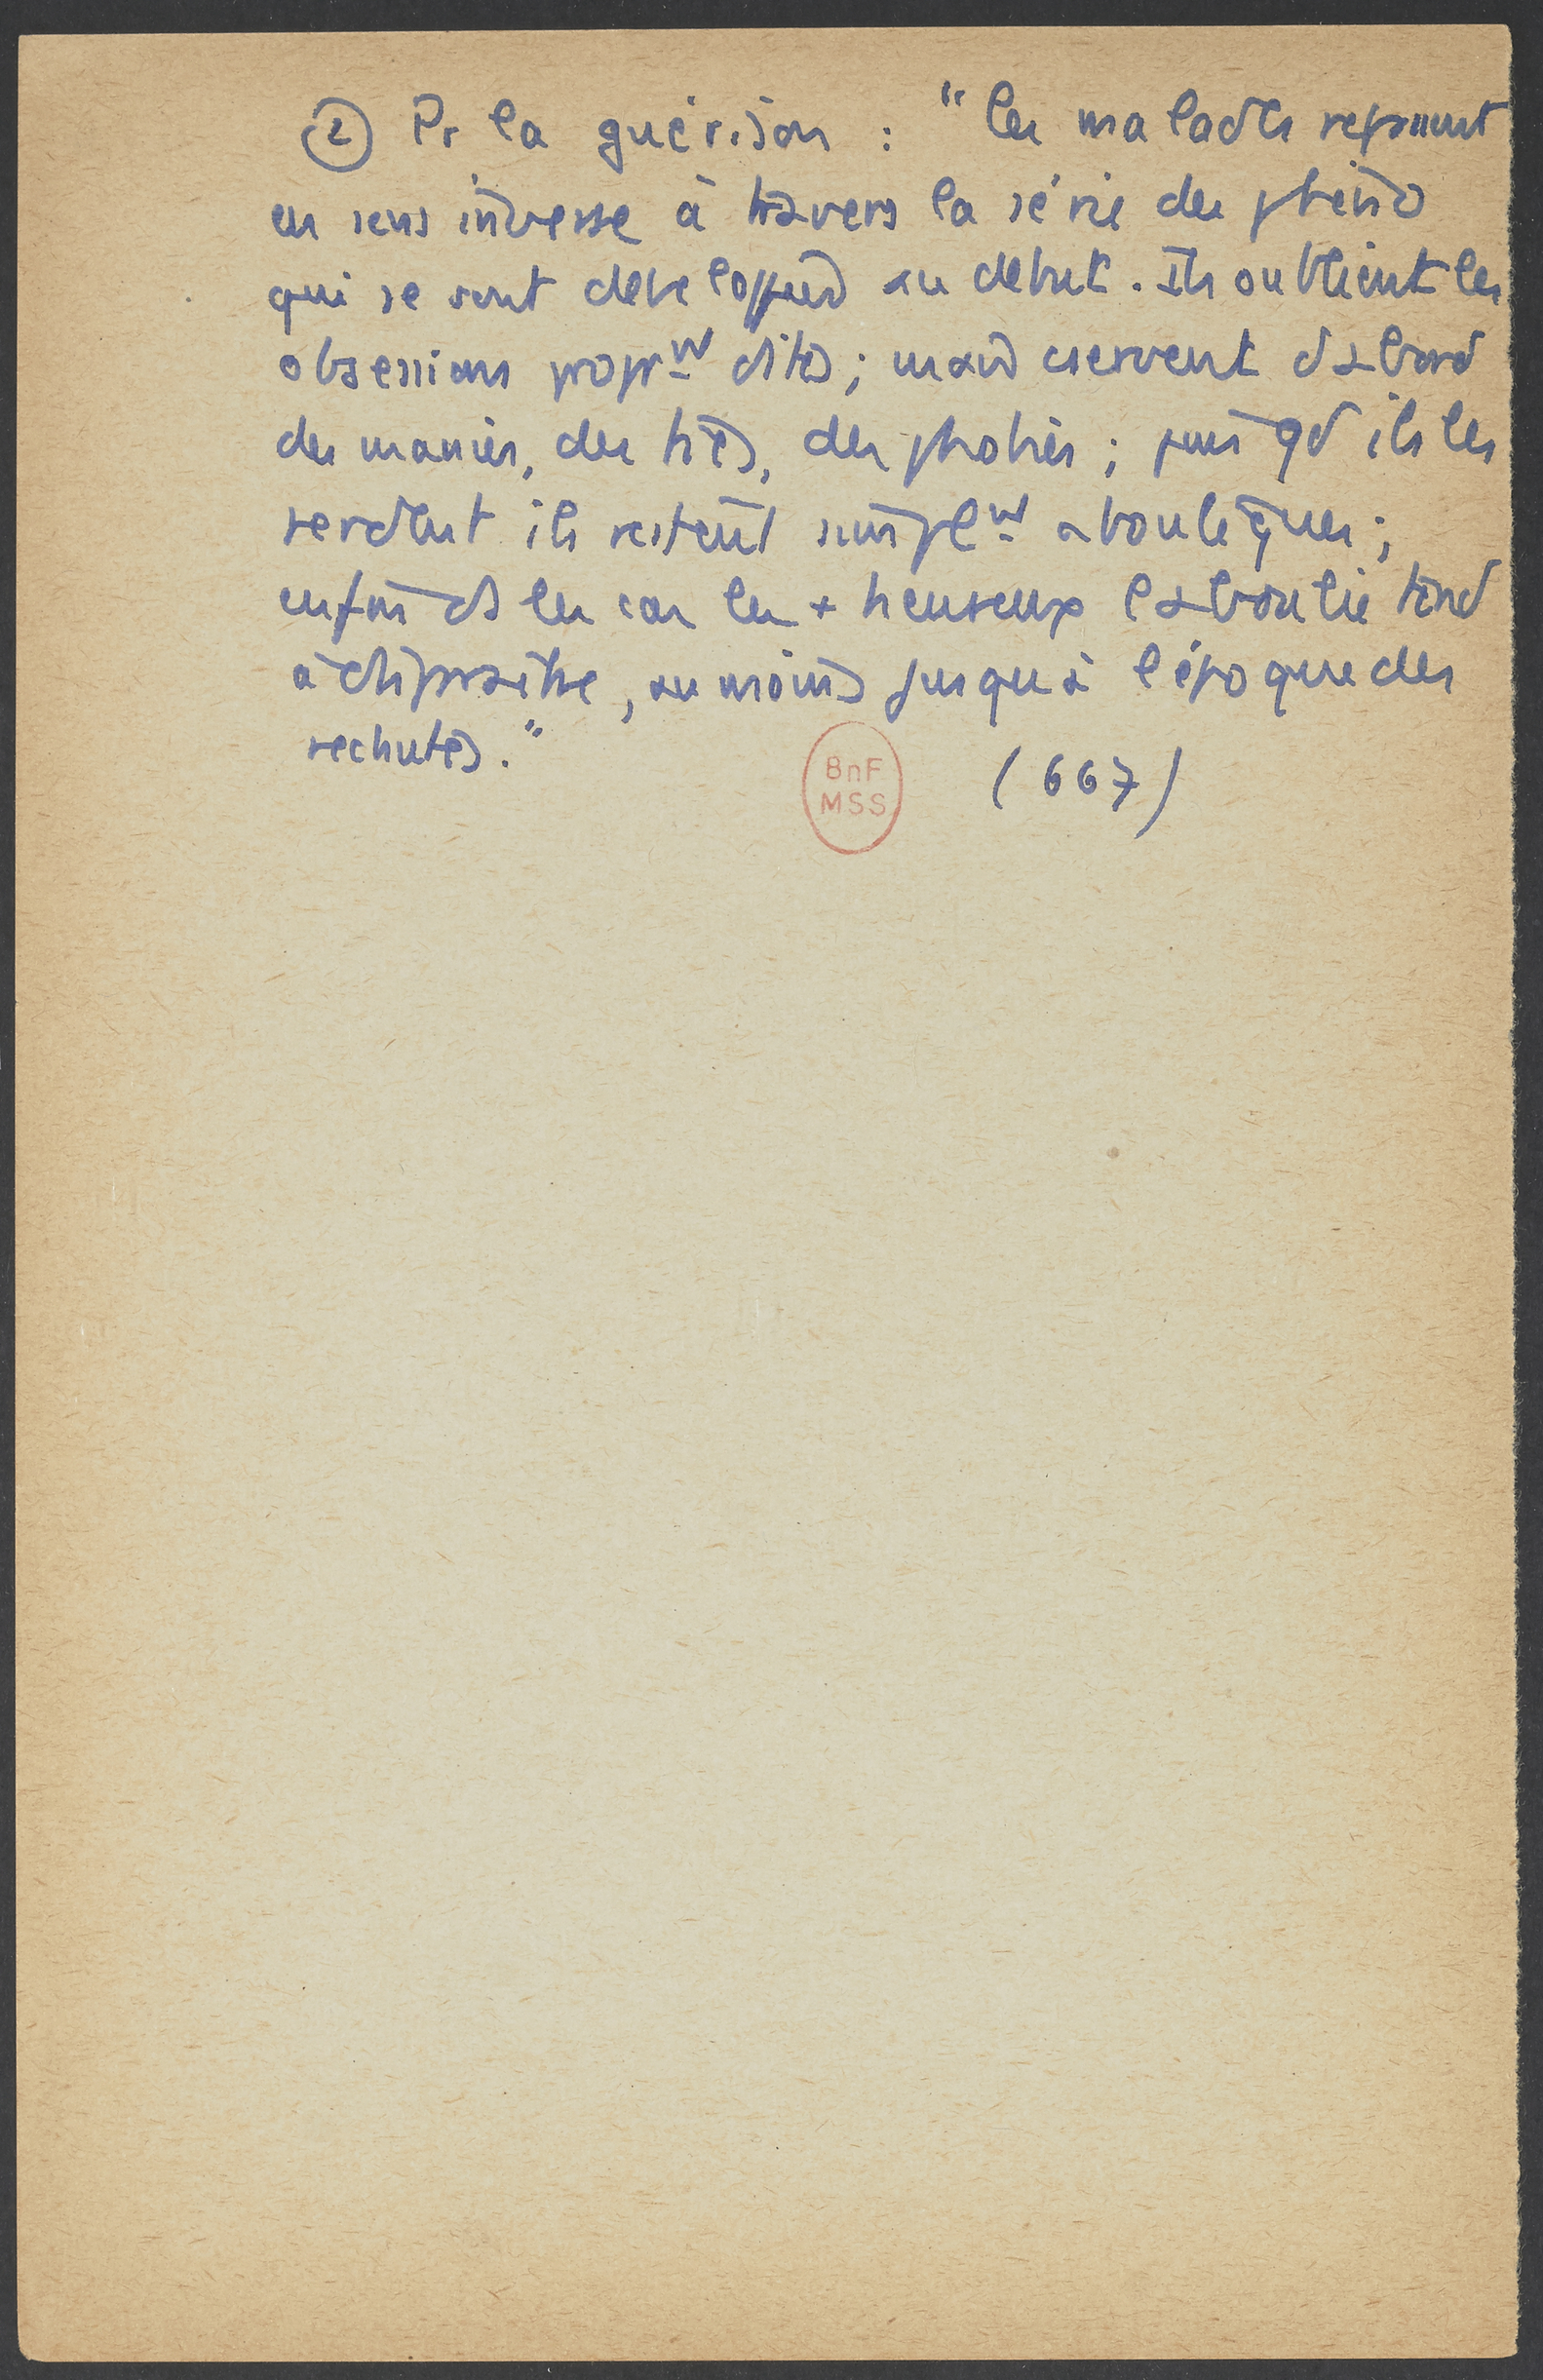 ② Pr la guérison : "les malades repassent
en sens inverse à travers la série des phéno
qui se sont développés au début. Ils oublient les
obsessions propr^mt dites ; mais cservent d'abord
des manies, des tics, des phobies ; puis qd ils les
perdent ils restent simpl^mt abouliques ;
enfin ds les cas les + heureux l'aboulie tend
à disparaître, au moins jusqu'à l'époque des
rechutes."
BnF
MSS
(667)